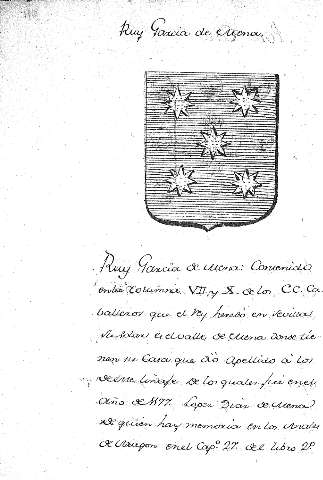 Ruy Garcia de Mena
Ruy Garcia de Mena: Contenido
en la Columna VII y X de los CC. Ca
balleros que el Rey heredó en Sevilla:
su Solar es el valle de Mena donde tie
nen su Casa que dio Apellido à los
de este linage de los quales fue en el
Año de 1177. Lope Diaz de Mena
de quien hay memoria en los Anales
de Aragon en el Capº. 27. del libro 2º.